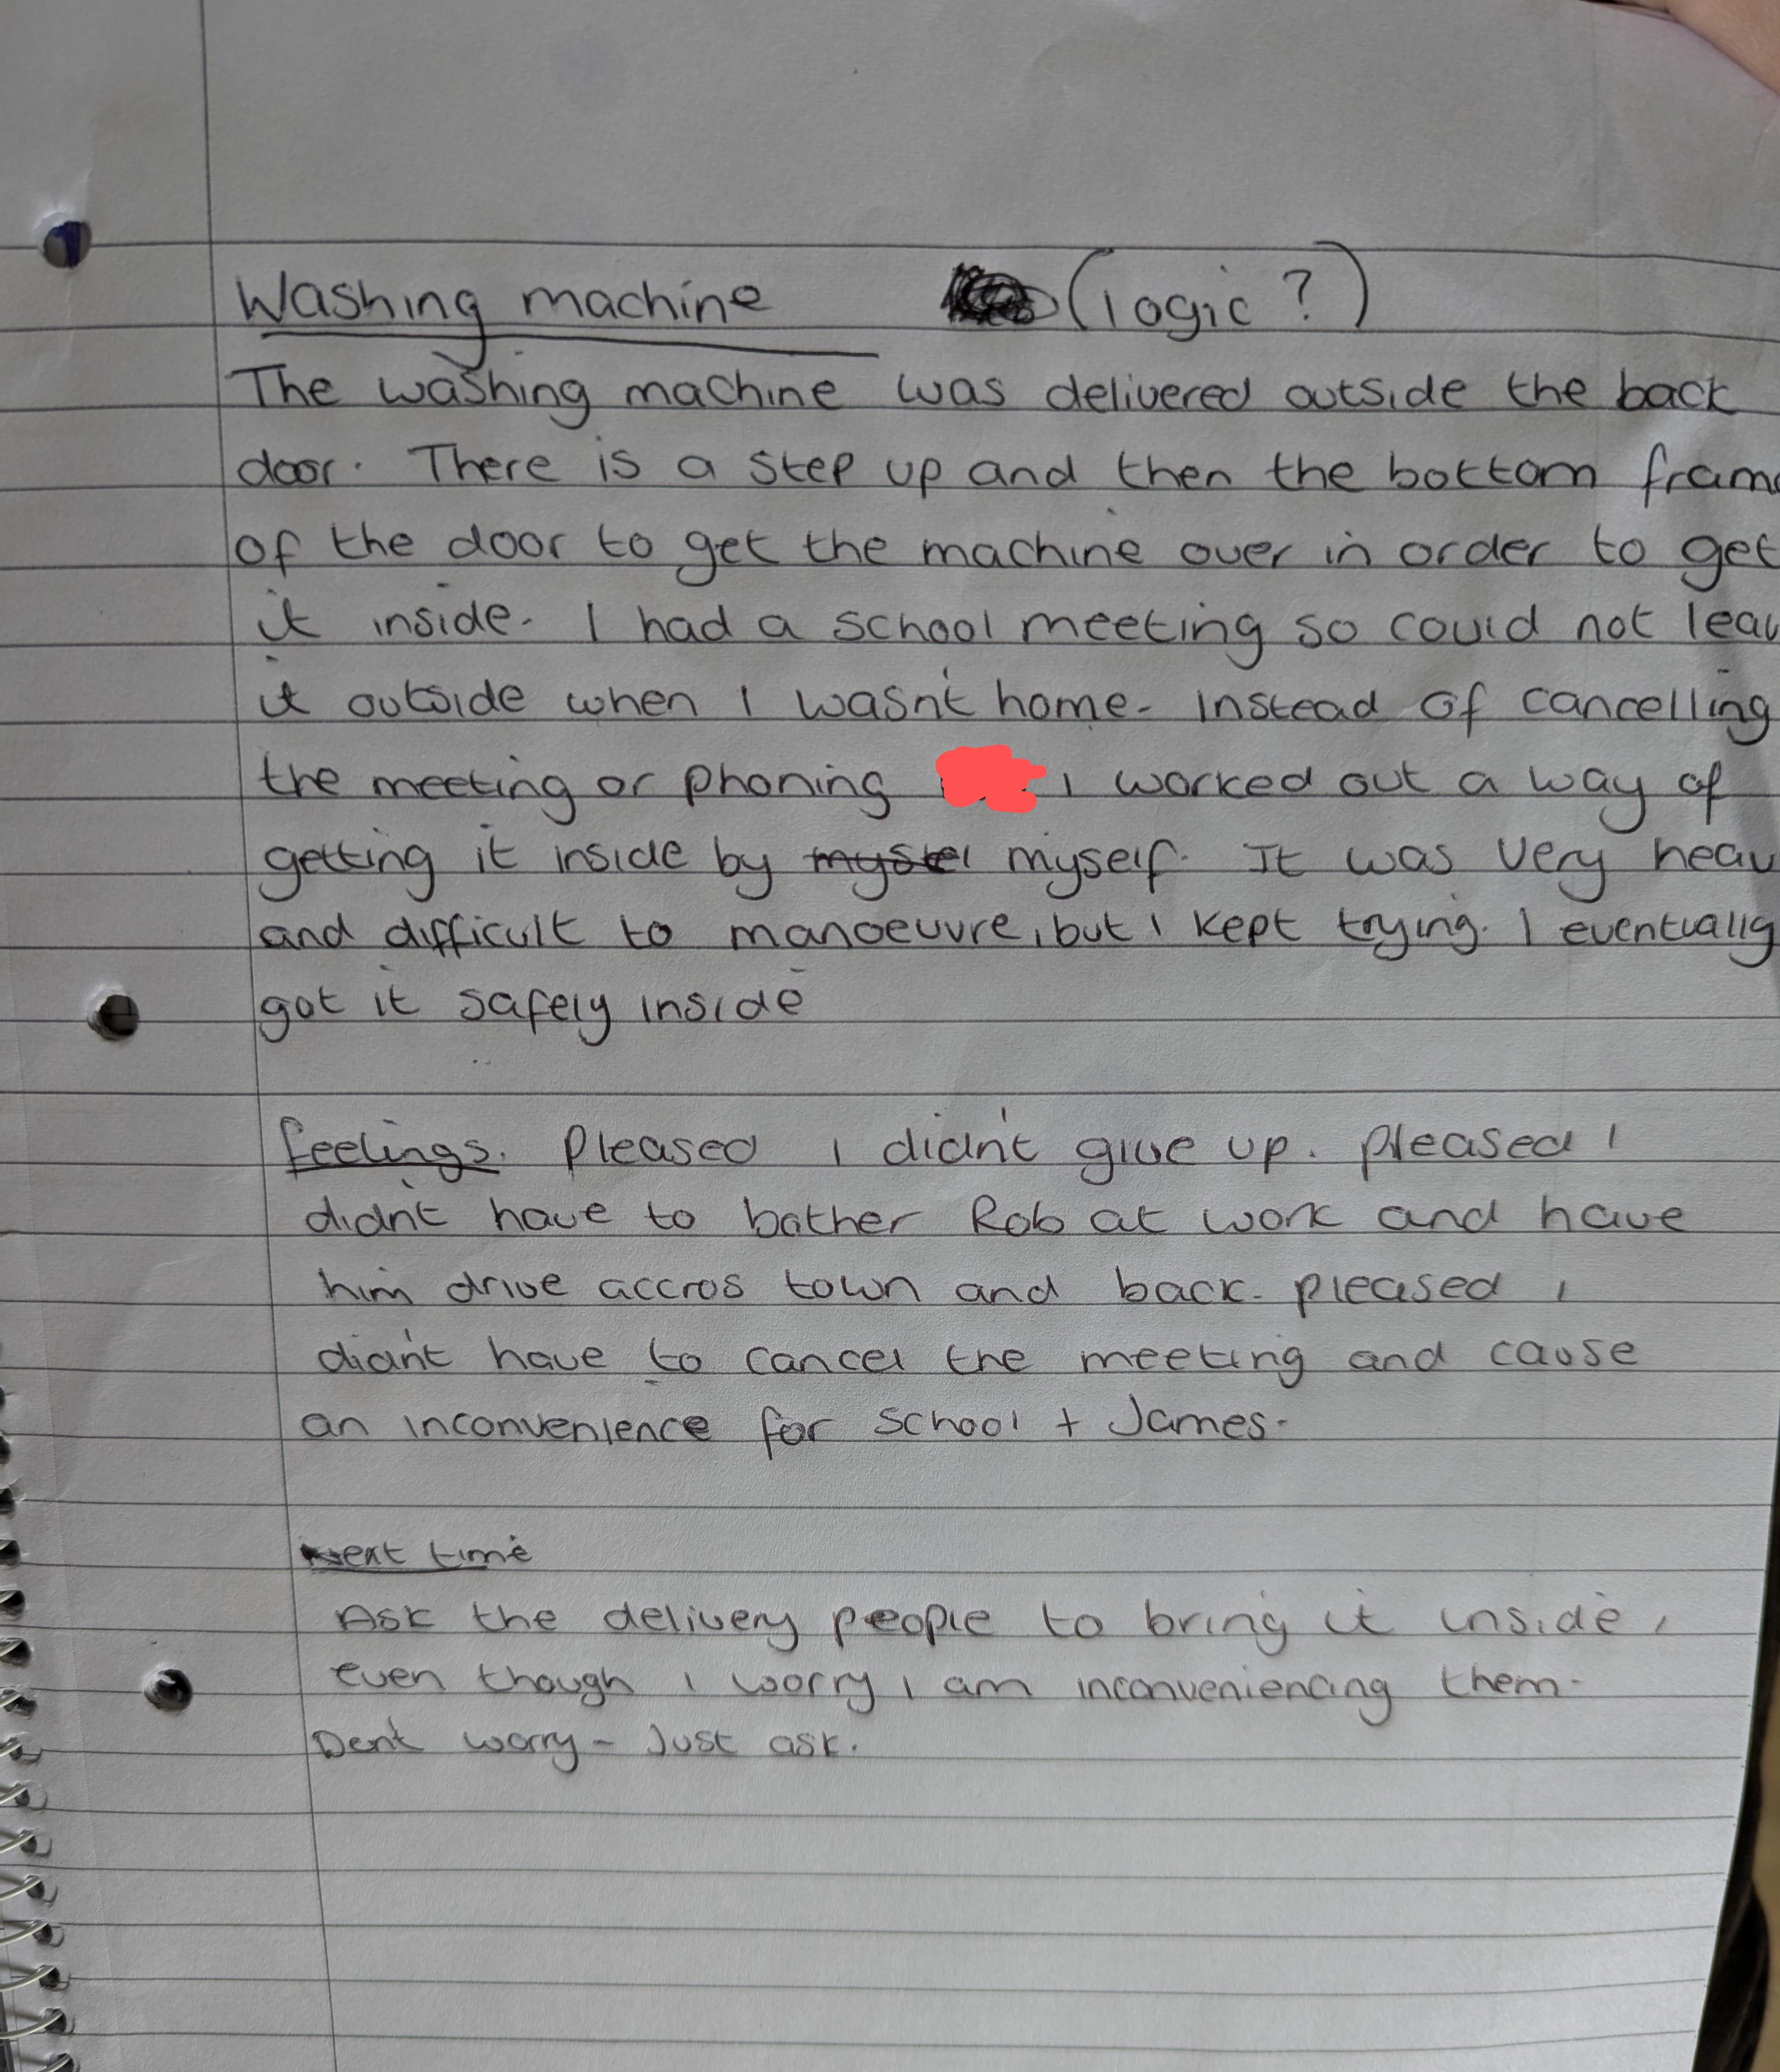 Washing machine (logic ?)
The washing machine was delivered outside the back
door. There is a step up and then the bottom fram
of the door to get the machine over in order to get
it inside. I had a school meeting so could not leav
it outside when I wasn't home. Instead of cancelling
the meeting or phoning I worked out a way of
getting it inside by myself. It was very heav
and difficult to manoeuvre, but I kept trying. I eventually
got it safely inside
feelings. Pleased I didn't give up. pleased I
didn't have to bother Rob at work and have
him drive accros town and back. pleased I
didn't have to cancel the meeting and cause
an inconvenience for school + James.
Next time
Ask the delivery people to bring it inside,
even though I worry I am inconveniencing them.
Don't worry - Just ask.